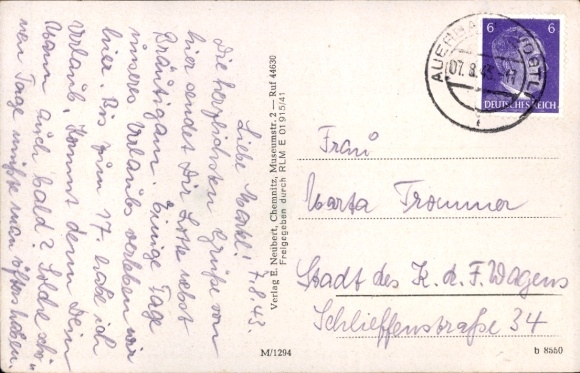 Liebe Martl! 7.8.43.
Die herzlichsten Grüße von
hier sendet Dir Lotte nebst
Bräutigam. Einige Tage
unseres Urlaubs verleben wir
hier. Bis zum 17. habe ich
Urlaub. Kommt denn Dein
Mann auch bald? Solche schö-
nen Tage müßte man öfters haben.
Verlag E. Neubert, Chemnitz, Museumstr. 2 — Ruf 44630
Freigegeben durch RLM E 01915/41
AUERBA
VOGTL
07.8.43
6 6
DEUTSCHES REICH
Frau
Marta Trommer
Stadt des K. d. F. Wagens
Schlieffenstraße 34
M/1294
b 8550